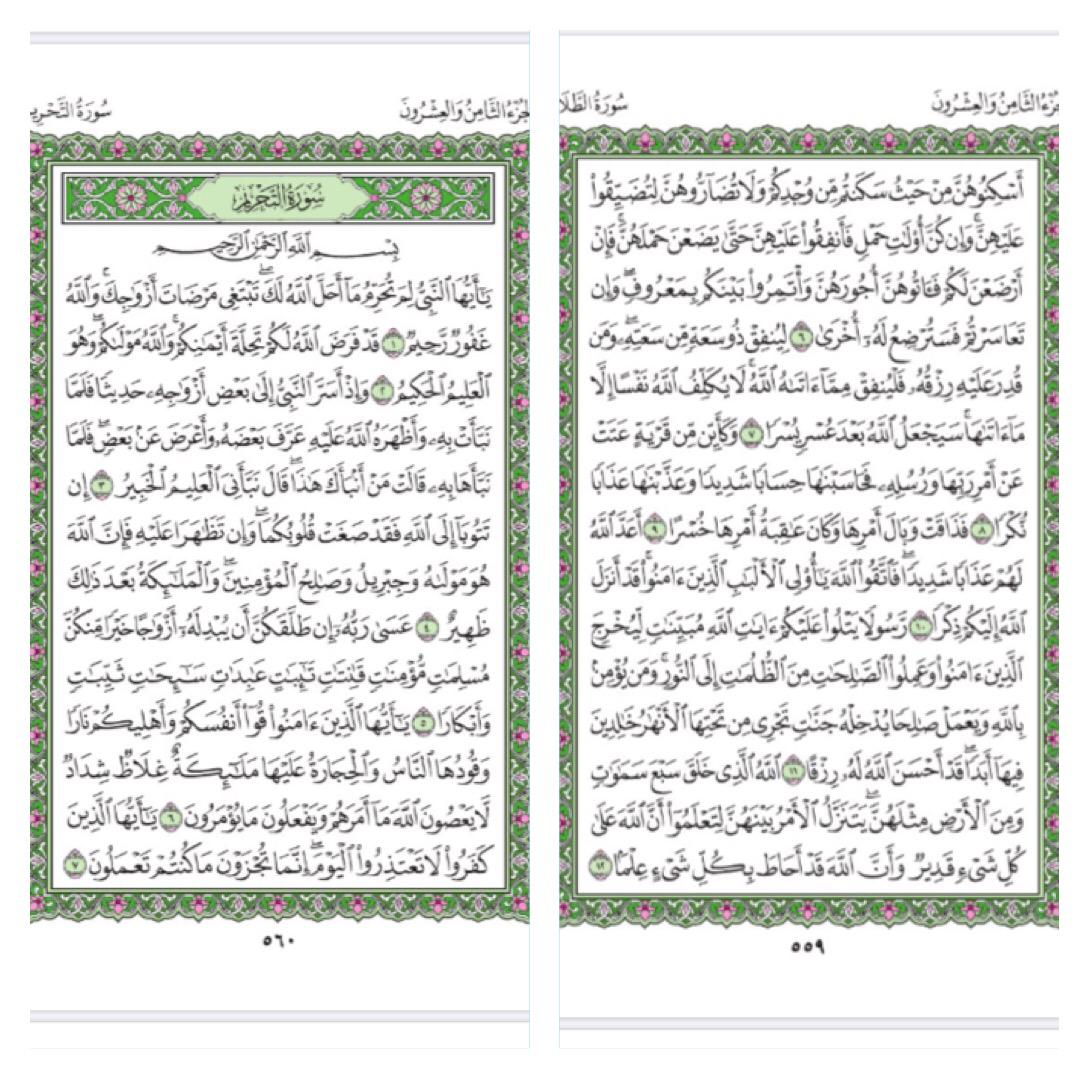 الجزء الثامن والعشرون
سورة الطلا
أَسْكِنُوهُنَّ مِنْ حَيْثُ سَكَنتُم مِّن وُجْدِكُمْ وَلَا تُضَآرُّوهُنَّ لِتُضَيِّقُوا۟
عَلَيْهِنَّ ۚ وَإِن كُنَّ أُو۟لَٰتِ حَمْلٍ فَأَنفِقُوا۟ عَلَيْهِنَّ حَتَّىٰ يَضَعْنَ حَمْلَهُنَّ ۚ فَإِنْ
أَرْضَعْنَ لَكُمْ فَـَٔاتُوهُنَّ أُجُورَهُنَّ وَأْتَمِرُوا۟ بَيْنَكُم بِمَعْرُوفٍ ۖ وَإِن
تَعَاسَرْتُمْ فَسَتُرْضِعُ لَهُۥٓ أُخْرَىٰ ٦ لِيُنفِقْ ذُو سَعَةٍ مِّن سَعَتِهِۦ ۖ وَمَن
قُدِرَ عَلَيْهِ رِزْقُهُۥ فَلْيُنفِقْ مِمَّآ ءَاتَىٰهُ ٱللَّهُ ۚ لَا يُكَلِّفُ ٱللَّهُ نَفْسًا إِلَّا
مَآ ءَاتَىٰهَا ۚ سَيَجْعَلُ ٱللَّهُ بَعْدَ عُسْرٍ يُسْرًا ٧ وَكَأَيِّن مِّن قَرْيَةٍ عَتَتْ
عَنْ أَمْرِ رَبِّهَا وَرُسُلِهِۦ فَحَاسَبْنَٰهَا حِسَابًا شَدِيدًا وَعَذَّبْنَٰهَا عَذَابًا
نُّكْرًا ٨ فَذَاقَتْ وَبَالَ أَمْرِهَا وَكَانَ عَٰقِبَةُ أَمْرِهَا خُسْرًا ٩ أَعَدَّ ٱللَّهُ
لَهُمْ عَذَابًا شَدِيدًا ۖ فَٱتَّقُوا۟ ٱللَّهَ يَٰٓأُو۟لِى ٱلْأَلْبَٰبِ ٱلَّذِينَ ءَامَنُوا۟ ۚ قَدْ أَنزَلَ
ٱللَّهُ إِلَيْكُمْ ذِكْرًا ١٠ رَّسُولًا يَتْلُوا۟ عَلَيْكُمْ ءَايَٰتِ ٱللَّهِ مُبَيِّنَٰتٍ لِّيُخْرِجَ
ٱلَّذِينَ ءَامَنُوا۟ وَعَمِلُوا۟ ٱلصَّٰلِحَٰتِ مِنَ ٱلظُّلُمَٰتِ إِلَى ٱلنُّورِ ۚ وَمَن يُؤْمِنۢ
بِٱللَّهِ وَيَعْمَلْ صَٰلِحًا يُدْخِلْهُ جَنَّٰتٍ تَجْرِى مِن تَحْتِهَا ٱلْأَنْهَٰرُ خَٰلِدِينَ
فِيهَآ أَبَدًا ۖ قَدْ أَحْسَنَ ٱللَّهُ لَهُۥ رِزْقًا ١١ ٱللَّهُ ٱلَّذِى خَلَقَ سَبْعَ سَمَٰوَٰتٍ
وَمِنَ ٱلْأَرْضِ مِثْلَهُنَّ ۖ يَتَنَزَّلُ ٱلْأَمْرُ بَيْنَهُنَّ لِتَعْلَمُوٓا۟ أَنَّ ٱللَّهَ عَلَىٰ
كُلِّ شَىْءٍ قَدِيرٌ وَأَنَّ ٱللَّهَ قَدْ أَحَاطَ بِكُلِّ شَىْءٍ عِلْمًۢا ١٢
٥٥٩
الجزء الثامن والعشرون
سورة التحريم
سُورَةُ التَّحْرِيمِ
بِسْمِ ٱللَّهِ ٱلرَّحْمَٰنِ ٱلرَّحِيمِ
يَٰٓأَيُّهَا ٱلنَّبِىُّ لِمَ تُحَرِّمُ مَآ أَحَلَّ ٱللَّهُ لَكَ ۖ تَبْتَغِى مَرْضَاتَ أَزْوَٰجِكَ ۚ وَٱللَّهُ
غَفُورٌ رَّحِيمٌ ١ قَدْ فَرَضَ ٱللَّهُ لَكُمْ تَحِلَّةَ أَيْمَٰنِكُمْ ۚ وَٱللَّهُ مَوْلَىٰكُمْ ۖ وَهُوَ
ٱلْعَلِيمُ ٱلْحَكِيمُ ٢ وَإِذْ أَسَرَّ ٱلنَّبِىُّ إِلَىٰ بَعْضِ أَزْوَٰجِهِۦ حَدِيثًا فَلَمَّا
نَبَّأَتْ بِهِۦ وَأَظْهَرَهُ ٱللَّهُ عَلَيْهِ عَرَّفَ بَعْضَهُۥ وَأَعْرَضَ عَنۢ بَعْضٍ ۖ فَلَمَّا
نَبَّأَهَا بِهِۦ قَالَتْ مَنْ أَنۢبَأَكَ هَٰذَا ۖ قَالَ نَبَّأَنِىَ ٱلْعَلِيمُ ٱلْخَبِيرُ ٣ إِن
تَتُوبَآ إِلَى ٱللَّهِ فَقَدْ صَغَتْ قُلُوبُكُمَا ۖ وَإِن تَظَٰهَرَا عَلَيْهِ فَإِنَّ ٱللَّهَ
هُوَ مَوْلَىٰهُ وَجِبْرِيلُ وَصَٰلِحُ ٱلْمُؤْمِنِينَ ۖ وَٱلْمَلَٰٓئِكَةُ بَعْدَ ذَٰلِكَ
ظَهِيرٌ ٤ عَسَىٰ رَبُّهُۥٓ إِن طَلَّقَكُنَّ أَن يُبْدِلَهُۥٓ أَزْوَٰجًا خَيْرًا مِّنكُنَّ
مُسْلِمَٰتٍ مُّؤْمِنَٰتٍ قَٰنِتَٰتٍ تَٰٓئِبَٰتٍ عَٰبِدَٰتٍ سَٰٓئِحَٰتٍ ثَيِّبَٰتٍ
وَأَبْكَارًا ٥ يَٰٓأَيُّهَا ٱلَّذِينَ ءَامَنُوا۟ قُوٓا۟ أَنفُسَكُمْ وَأَهْلِيكُمْ نَارًا
وَقُودُهَا ٱلنَّاسُ وَٱلْحِجَارَةُ عَلَيْهَا مَلَٰٓئِكَةٌ غِلَاظٌ شِدَادٌ
لَّا يَعْصُونَ ٱللَّهَ مَآ أَمَرَهُمْ وَيَفْعَلُونَ مَا يُؤْمَرُونَ ٦ يَٰٓأَيُّهَا ٱلَّذِينَ
كَفَرُوا۟ لَا تَعْتَذِرُوا۟ ٱلْيَوْمَ ۖ إِنَّمَا تُجْزَوْنَ مَا كُنتُمْ تَعْمَلُونَ ٧
٥٦٠